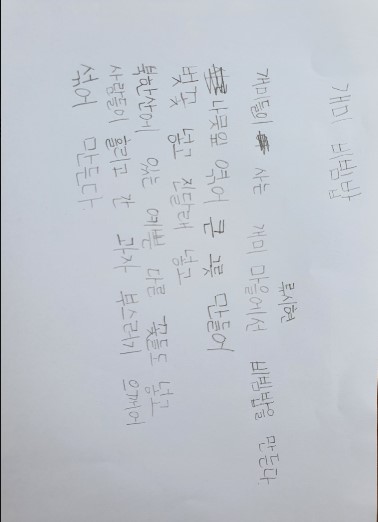 개미 비빔밥
류시현
개미들이 사는 개미 마을에선 비빔밥을 만든다
나뭇잎 엮어 큰 그릇 만들어
벚꽃 넣고 진달래 넣고
북한산에 있는 예쁜 다른 꽃들도 넣고
사람들이 흘리고 간 과자 부스러기 으깨어
섞어 만든다